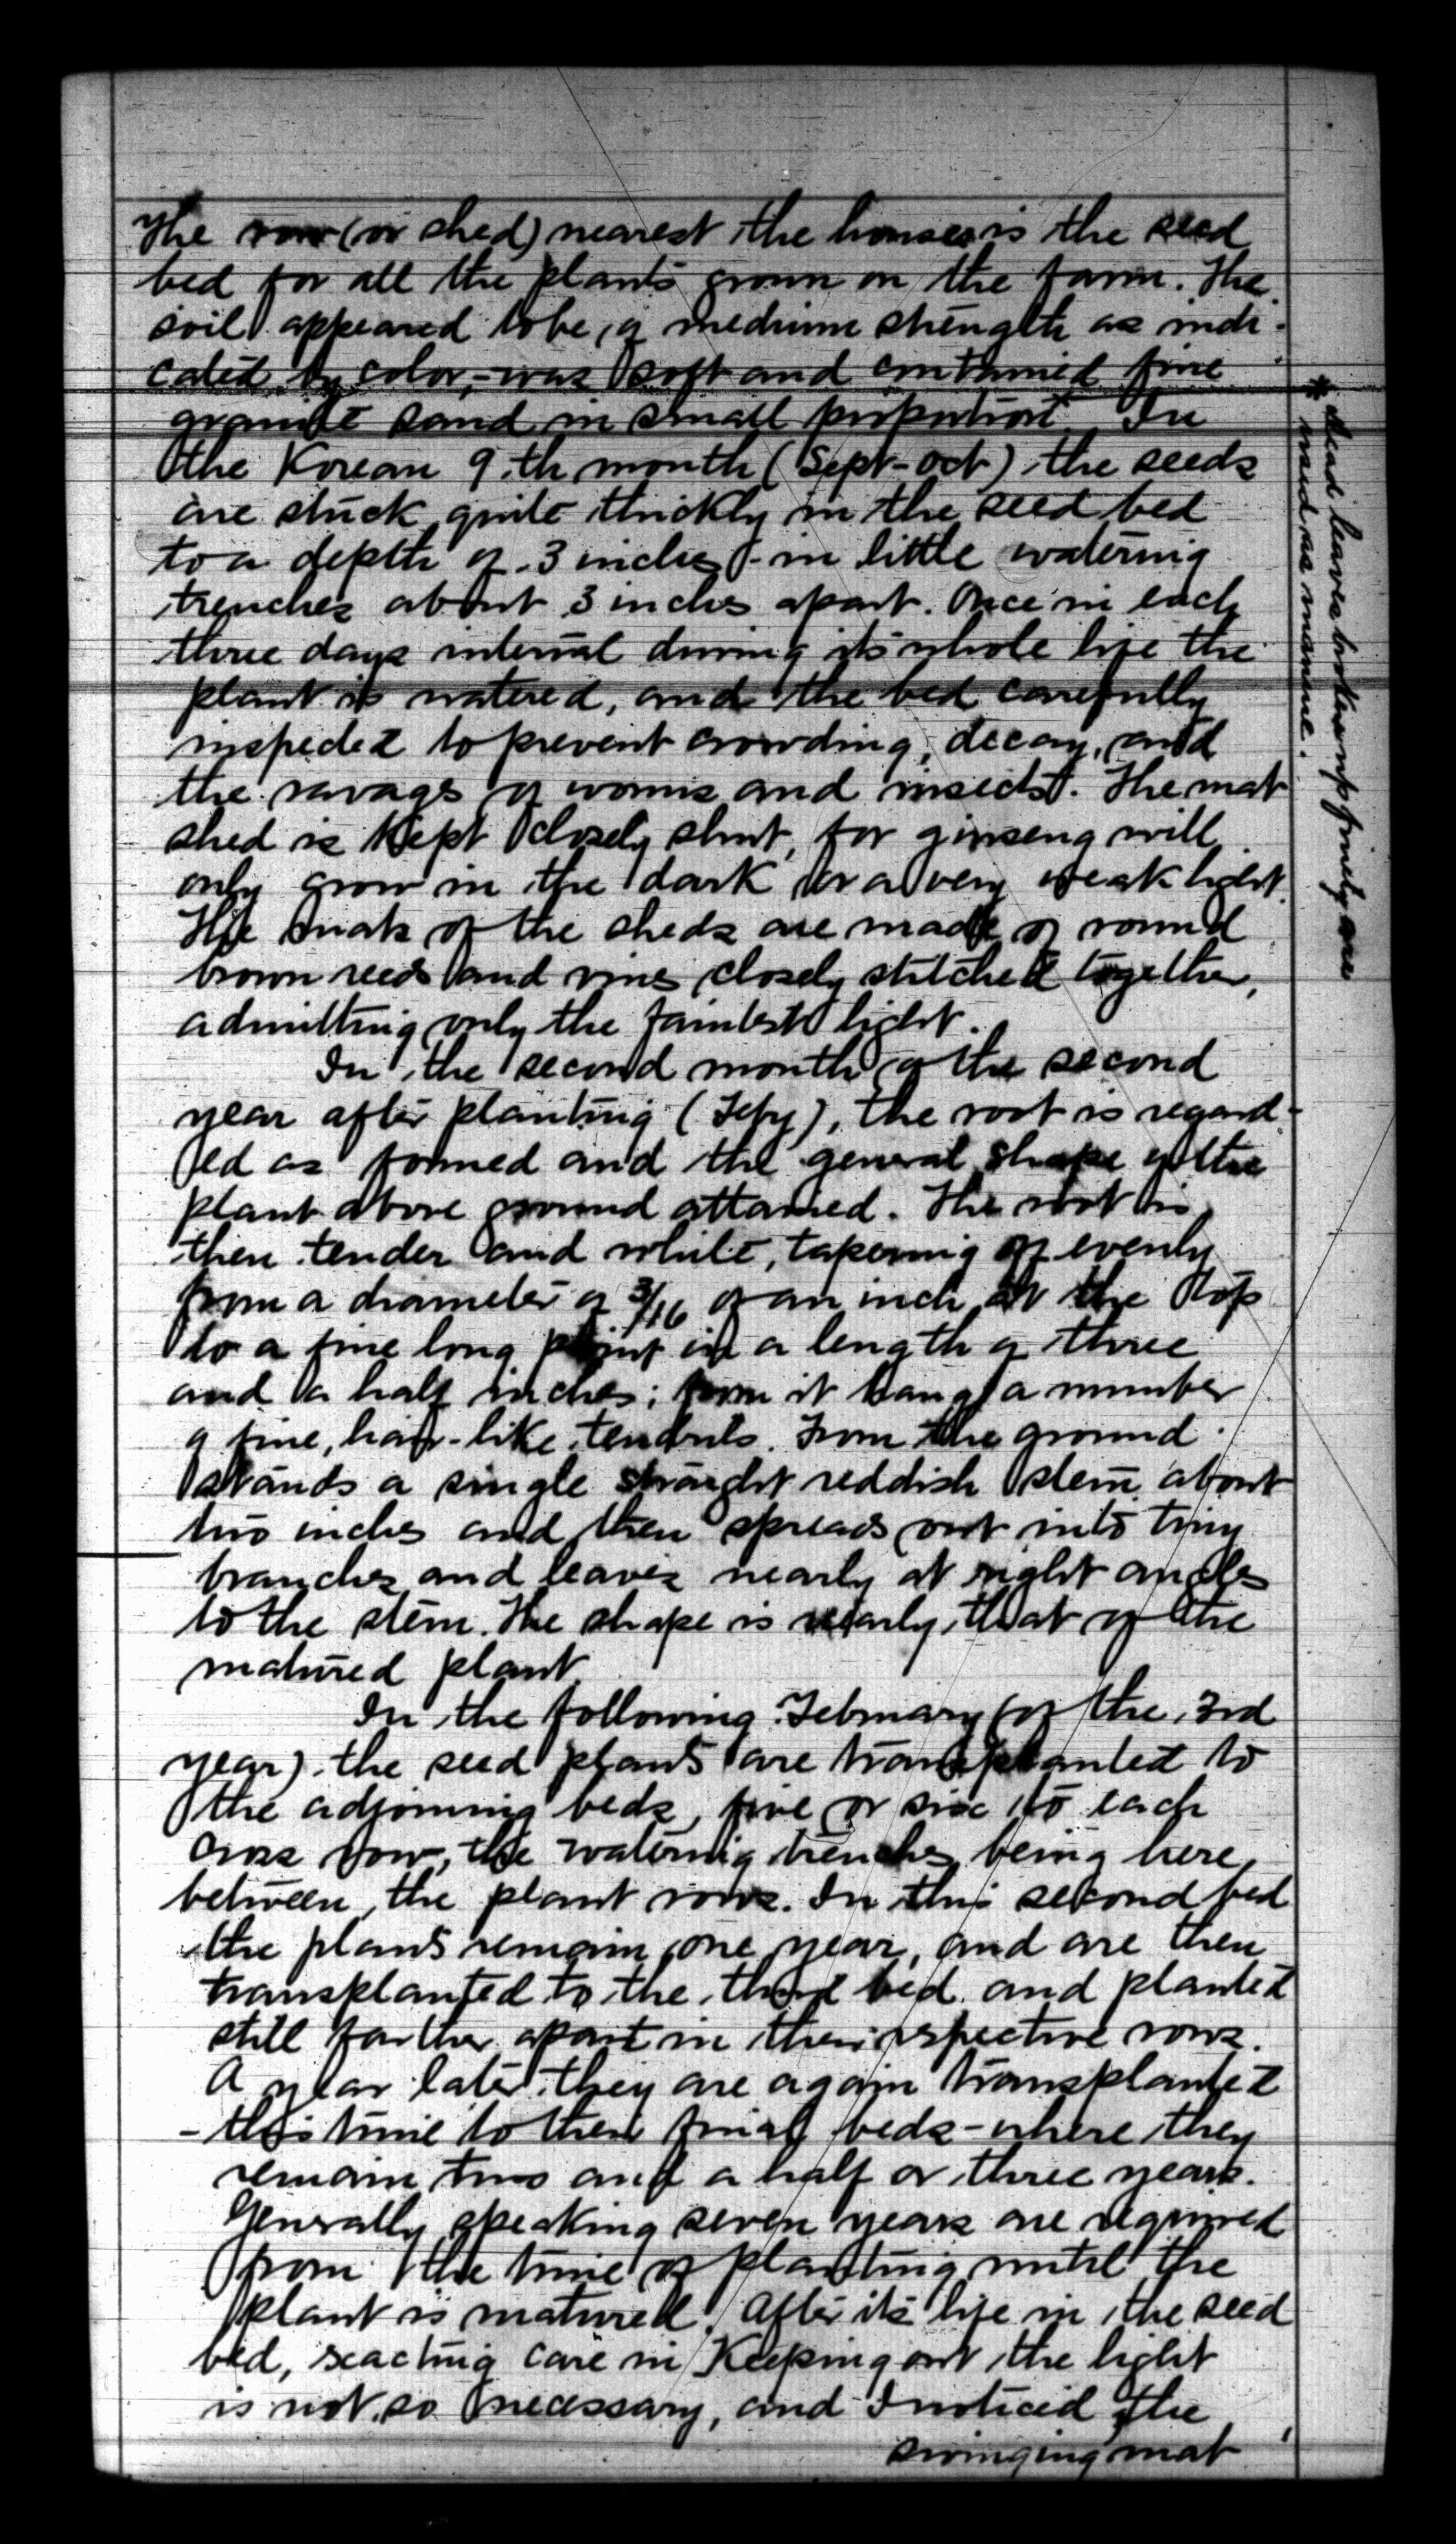 The row (or shed) nearest the houses is the seed
bed for all the plants grown on the farm. The
soil appeared to be of medium strength as indi-
cated by color,- was soft and contained fine
granite sand in small proportion. In
the Korean 9th month (Sept-Oct) the seeds
are stuck quite thickly in the seed bed
to a depth of 3 inches - in little watering
trenches about 3 inches apart. Once in each
three days interval during its whole life the
plant is watered, and the bed carefully
inspected to prevent crowding, decay, and
the ravages of worms and insects. The mat
shed is kept closely shut, for ginseng will
only grow in the dark or a very weak light.
The mats of the sheds are made of round
brown reeds and vines closely stitched together,
admitting only the faintest light.
In the second month of the second
year after planting (Feby), the root is regard-
ed as formed and the general shape of the
plant above ground attained. The root is
then tender and white, tapering off evenly
from a diameter of 3/16 of an inch at the top
to a fine long point in a length of three
and a half inches; from it hang a number
of fine, hair-like tendrils. From the ground
stands a single straight reddish stem about
two inches and then spreads out into tiny
branches and leaves nearly at right angles
to the stem. The shape is nearly that of the
matured plant
In the following February (of the 3rd
year) the seed plants are transplanted to
the adjoining beds, five or six to each
cross row, the watering trenches being here
between the plant rows. In this second bed
the plants remain one year, and are then
transplanted to the third bed and planted
still farther apart in their respective rows.
A year later they are again transplanted
- this time to their final beds - where they
remain two and a half or three years.
Generally speaking seven years are required
from the time of planting until the
plant is matured. After its life in the seed
bed, exacting care in keeping out the light
is not so necessary, and I noticed the
swinging mat
* dead leaves broken up finely are
used as manure.